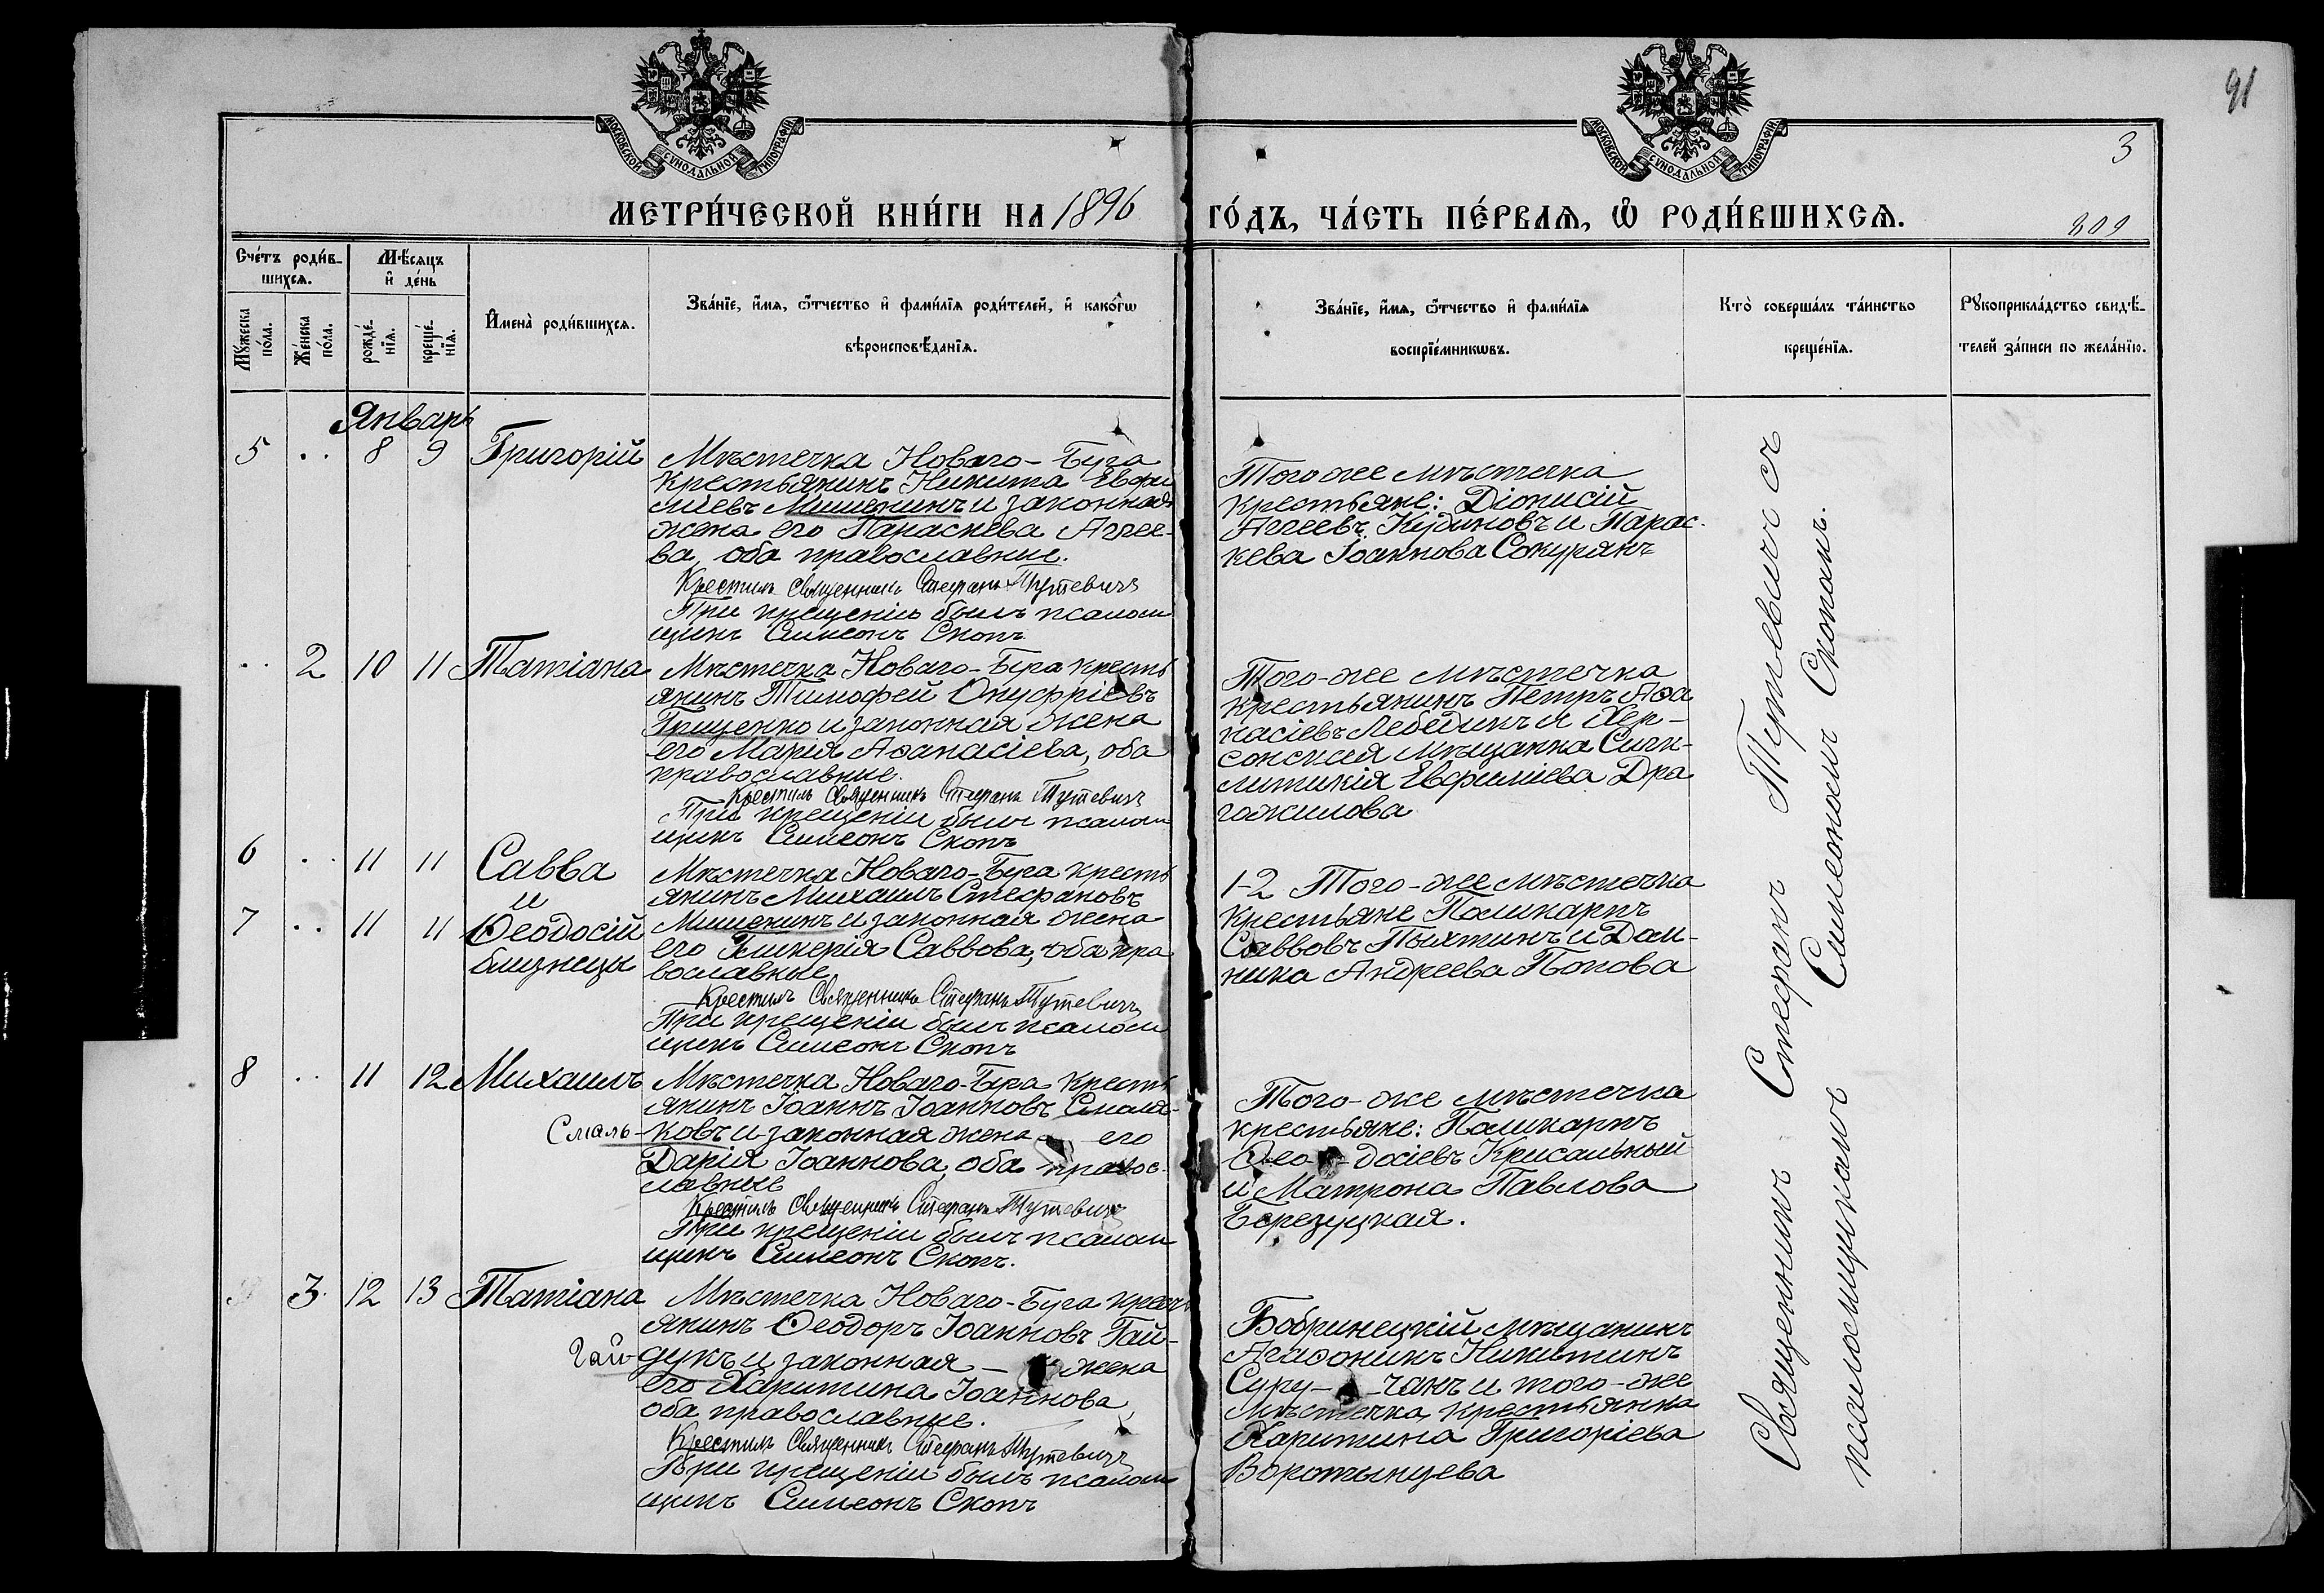 91
3
МОСКОВСКОЙ СѴНОДАЛЬНОЙ ТИПОГРАФІИ
МОСКОВСКОЙ СѴНОДАЛЬНОЙ ТИПОГРАФІИ
МЕТРИ́ЧЕСКОЙ КНИ́ГИ НА 1896 ГО́ДЪ, ЧА́СТЬ ПЕ́РВАѦ, Ѽ РОДИ́ВШИХСѦ.
309
Сче́тъ роди́в-
шихсѧ.
Мꙋ́жеска
по́ла.
Же́нска
по́ла.
Мѣ́сѧцъ
и҆ де́нь
рожде́-
нїѧ.
креще́-
нїѧ.
И҆мена̀ роди́вшихсѧ.
Зва́нїе, и҆́мѧ, ѻ҆́тчество и҆ фами́лїѧ роди́телей, и҆ како́гѡ
вѣроисповѣ́данїѧ.
Зва́нїе, и҆́мѧ, ѻ҆́тчество и҆ фами́лїѧ
воспрїе́мникѡвъ.
Кто̀ соверша́лъ та́инство
креще́нїѧ.
Рꙋкоприкла́дство свидѣ́-
телей за́писи по жела́нїю.
Январь
5 .. 8 9 Григорій
Мѣстечка Новаго-Буга
крестьянинъ Никита Евфи
міевъ Мишенинъ и законная
жена его Параскева Аггее-
ва, оба православные.
Крестилъ Священникъ Стефанъ Тутевичъ
При крещеніи былъ псалом
щикъ Симеонъ Скопъ
Того же мѣстечка
крестьяне: Діонисій
Аггеевъ Кудиновъ и Парас-
кева Іоаннова Сокурянъ
.. 2 10 11 Татіана
Мѣстечка Новаго-Буга кресть
янинъ Тимофей Онуфріевъ
Грищенко и законная жена
его Марія Аѳанасіева, оба
православные.
Крестилъ Священникъ Стефанъ Тутевичъ
При крещеніи былъ псалом
щикъ Симеонъ Скопъ
Того-же мѣстечка
крестьянинъ Петръ Аѳа
насіевъ Лебединъ и Хер-
сонская мѣщанка Сигк-
литикія Евфиміева Дра
гожилова
6 .. 11 11 Савва
и
7 .. 11 11 Ѳеодосій
близнецы
Мѣстечка Новаго-Буга кресть
янинъ Михаилъ Стефановъ
Мишенинъ и законная жена
его Гликерія Саввова, оба пра
вославные
Крестилъ Священникъ Стефанъ Тутевичъ
При крещеніи былъ псалом
щикъ Симеонъ Скопъ
1-2 Того-же мѣстечка
крестьяне Поликарпъ
Саввовъ Пыхтинъ и Дом-
ника Андреева Попова
8 .. 11 12 Михаилъ
Мѣстечка Новаго-Буга кресть
янинъ Іоаннъ Іоанновъ Смоля-
Смаль-ковъ и законная жена его
Дарія Іоаннова, оба правос-
лавные
Крестилъ Священникъ Стефанъ Тутевичъ
При крещеніи былъ псалом
щикъ Симеонъ Скопъ.
Того-же мѣстечка
крестьяне: Поликарпъ
Ѳео-досіевъ Крисальный
и Матрона Павлова
Березуцкая.
3. 12 13 Татіана
Мѣстечка Новаго-Буга крест
янинъ Ѳеодоръ Іоанновъ Гай-
Гай-дукъ и законная - жена
его Харитина Іоаннова
оба православные.
Крестилъ Священникъ Стефанъ Тутевичъ
При крещеніи былъ псалом
щикъ Симеонъ Скопъ
Бобринецкій мѣщанинъ
Агаѳонинъ Никитинъ
Суру--чанъ и того-же
мѣстечка крестьянка
Харитина Григоріева
Воротынцева
Священникъ Стефанъ Тутевичъ съ
псаломщикомъ Симеономъ Скопомъ.